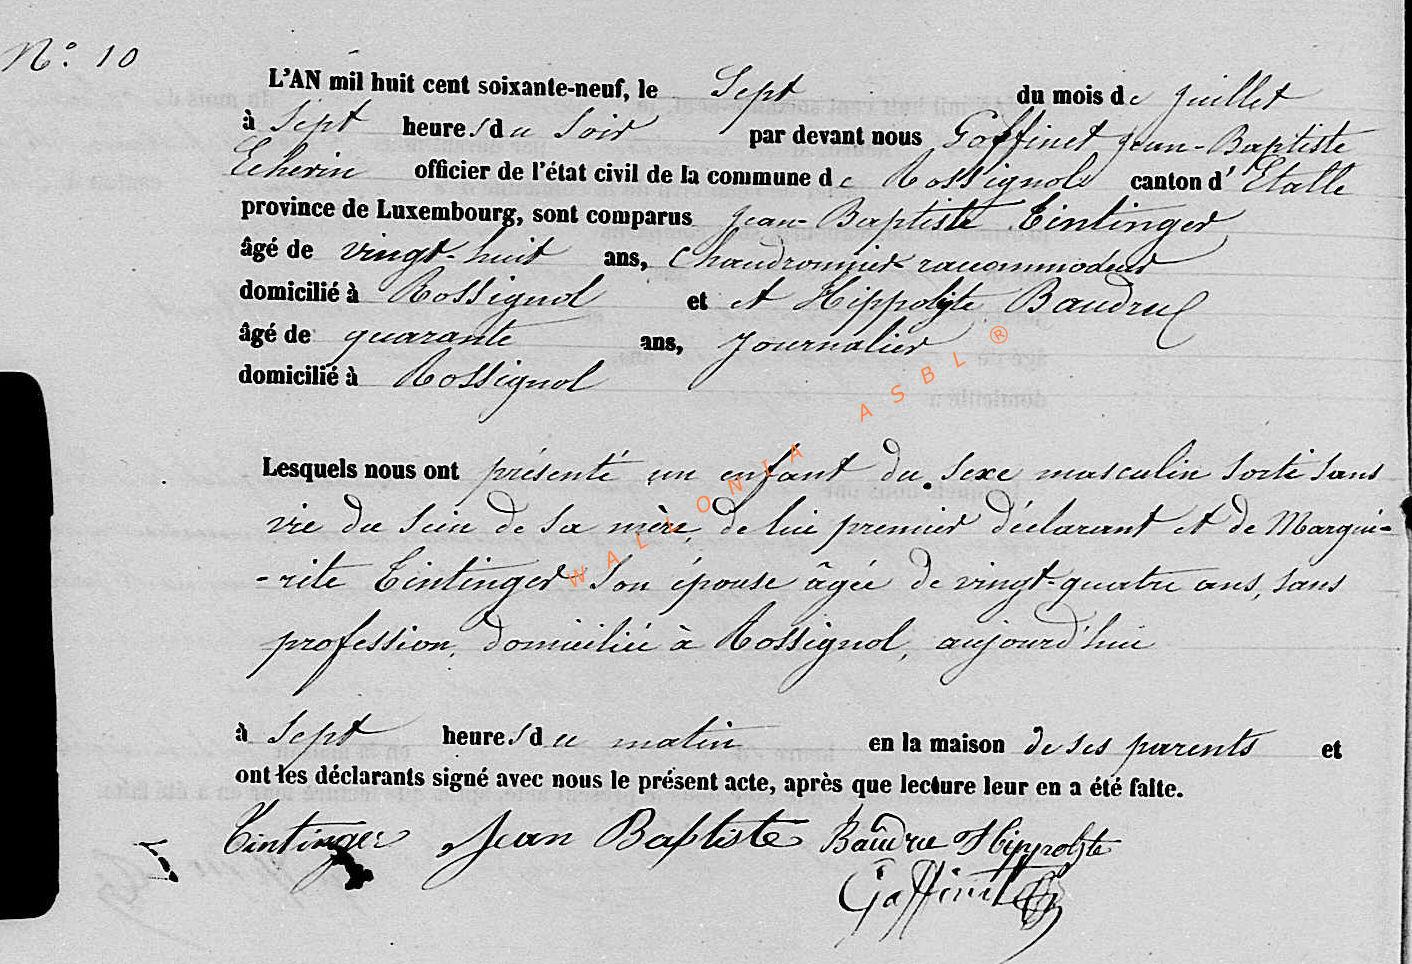 N.º 10
L'AN mil huit cent soixante-neuf, le Sept du mois de juillet
à Sept heures du Soir par devant nous Goffinet Jean-Baptiste
Echevin officier de l'état civil de la commune de Rossignol canton d'Etalle
province de Luxembourg, sont comparus Jean-Baptiste Tintinger
âgé de vingt-huit ans, Chaudronnier raccommodeur
domicilié à Rossignol et et Hippolyte Baudru
âgé de quarante ans, Journalier
domicilié à Rossignol
Lesquels nous ont présenté un enfant du sexe masculin sorti sans
vie du sein de sa mère, de lui premier déclarant et de Margue-
-rite Tintinger son épouse âgée de vingt-quatre ans, sans
profession, domiciliée à Rossignol, aujourd'hui
à Sept heures du matin en la maison de ses parents et
ont les déclarants signé avec nous le présent acte, après que lecture leur en a été faite.
Tintinger Jean Baptiste Baudru Hippolyte
Goffinet
WALLONIA ASBL ®